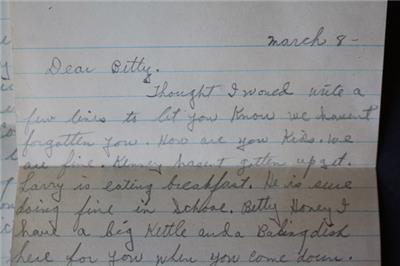 march 8-
Dear Betty.
Thought I would write a
few lines to let you know we havent
forgotten you. How are you kids. We
are fine. Kenney hasent gotten up yet.
Larry is eating breakfast. He is sure
doing fine in School. Betty Honey I
have a big Kettle and a Baking dish
here for you when you come down.